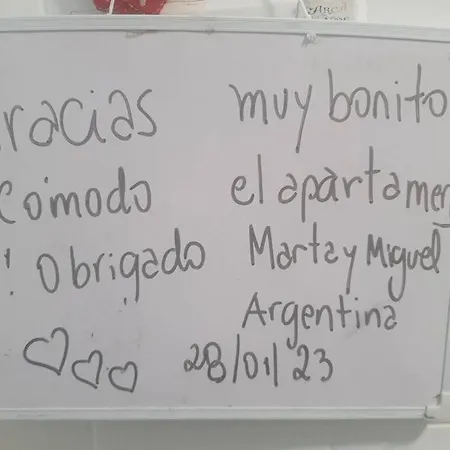 racias muy bonito
comodo el apartamen
! Obrigado Marta y Miguel
Argentina
28/01/23